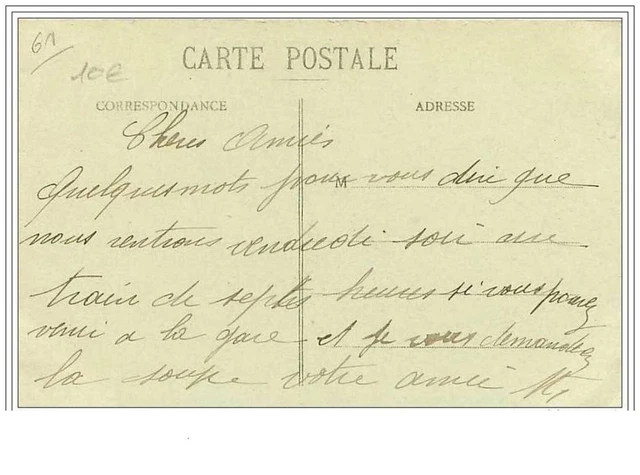 61
10€
CARTE POSTALE
CORRESPONDANCE
ADRESSE
M
Cheres Amies
quelques mots pour vous dire que
nous rentrons vendredi soir au
train de septes heures si vous pouvez
venir a la gare et je vous demanderez
la soupe votre amie